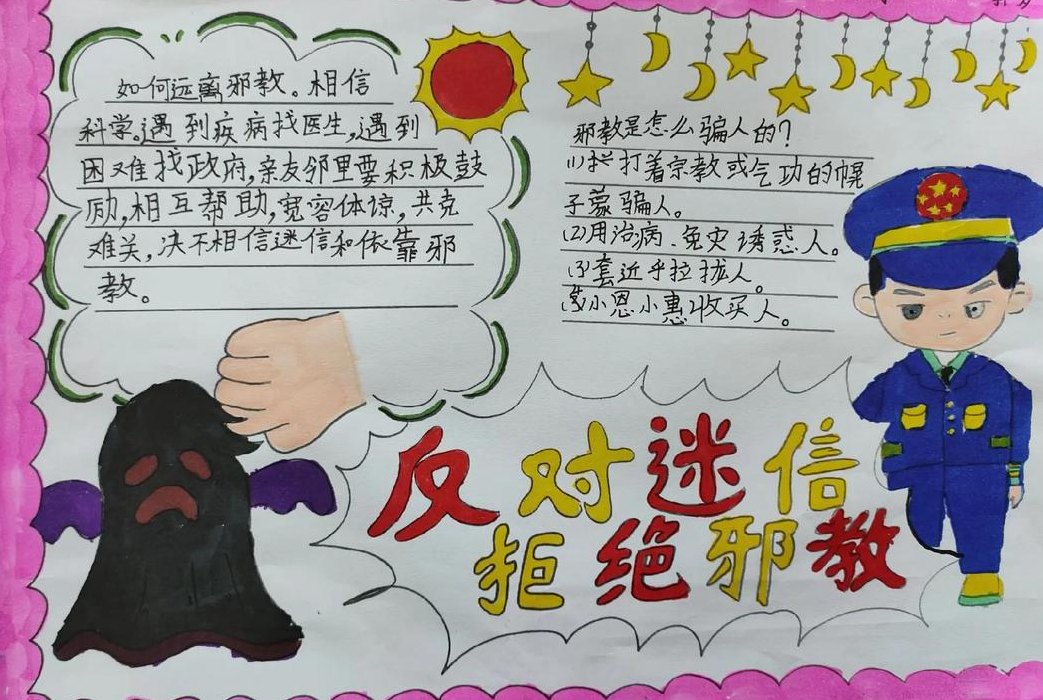 如何远离邪教。相信
科学。遇到疾病找医生,遇到
困难找政府,亲友邻里要积极鼓
励,相互帮助,宽容体谅,共克
难关,决不相信迷信和依靠邪
教。
邪教是怎么骗人的?
(1)拦打着宗教或气功的幌
子蒙骗人。
(2)用治病、免灾诱惑人。
(3)套近乎拉拢人。
小恩小惠收买人。
反对迷信
拒绝邪教